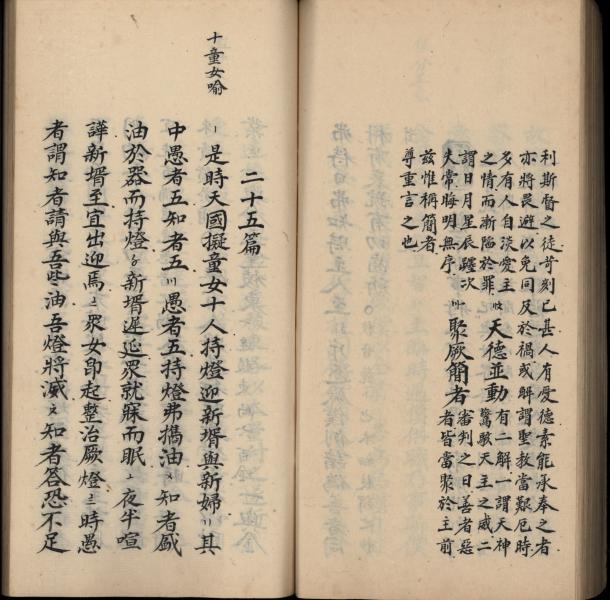 利斯督之徒苛刻已甚人有愛德素能承奉之者
亦將畏避以免同及於禍或解謂聖教當艱厄時
多有人自淡愛主
之情而漸陷於罪
天德並動
有二解一謂天神
驚駭天主之威二
謂日月星辰躔次
失常晦明無序
聚厥簡者
審判之日善者惡
者皆當聚於主前
兹惟稱簡者
尊重言之也
十童女喻
二十五篇
〡是時天國擬童女十人持燈迎新壻與新婦〢其
中愚者五知者五〣愚者五持燈弗攜油〤知者盛
油於器而持燈〥新壻遲延眾就寐而眠〦夜半喧
譁新壻至宜出迎焉〧眾女即起整治厥燈〨時愚
者謂知者請與吾些油吾燈將滅〩知者答恐不足